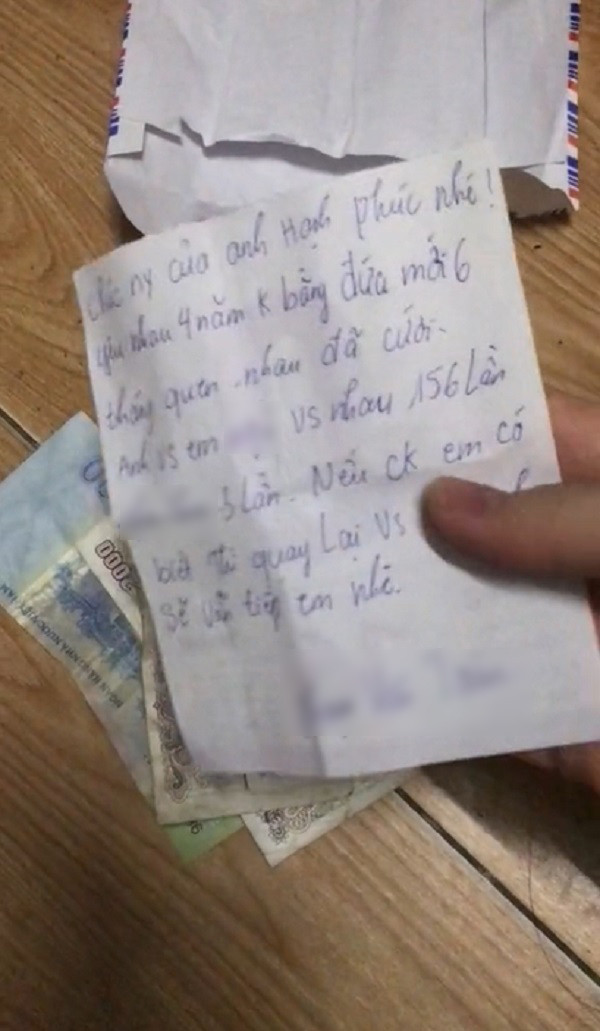 Chúc ny của anh Hạnh phúc nhé!
yêu nhau 4 năm k bằng đứa mới 6
tháng quen nhau đã cưới.
Anh vs em vs nhau 156 lần
3 lần. Nếu ck em có
biết thì quay lại vs
sẽ vẫn tiếp em nhé.
000